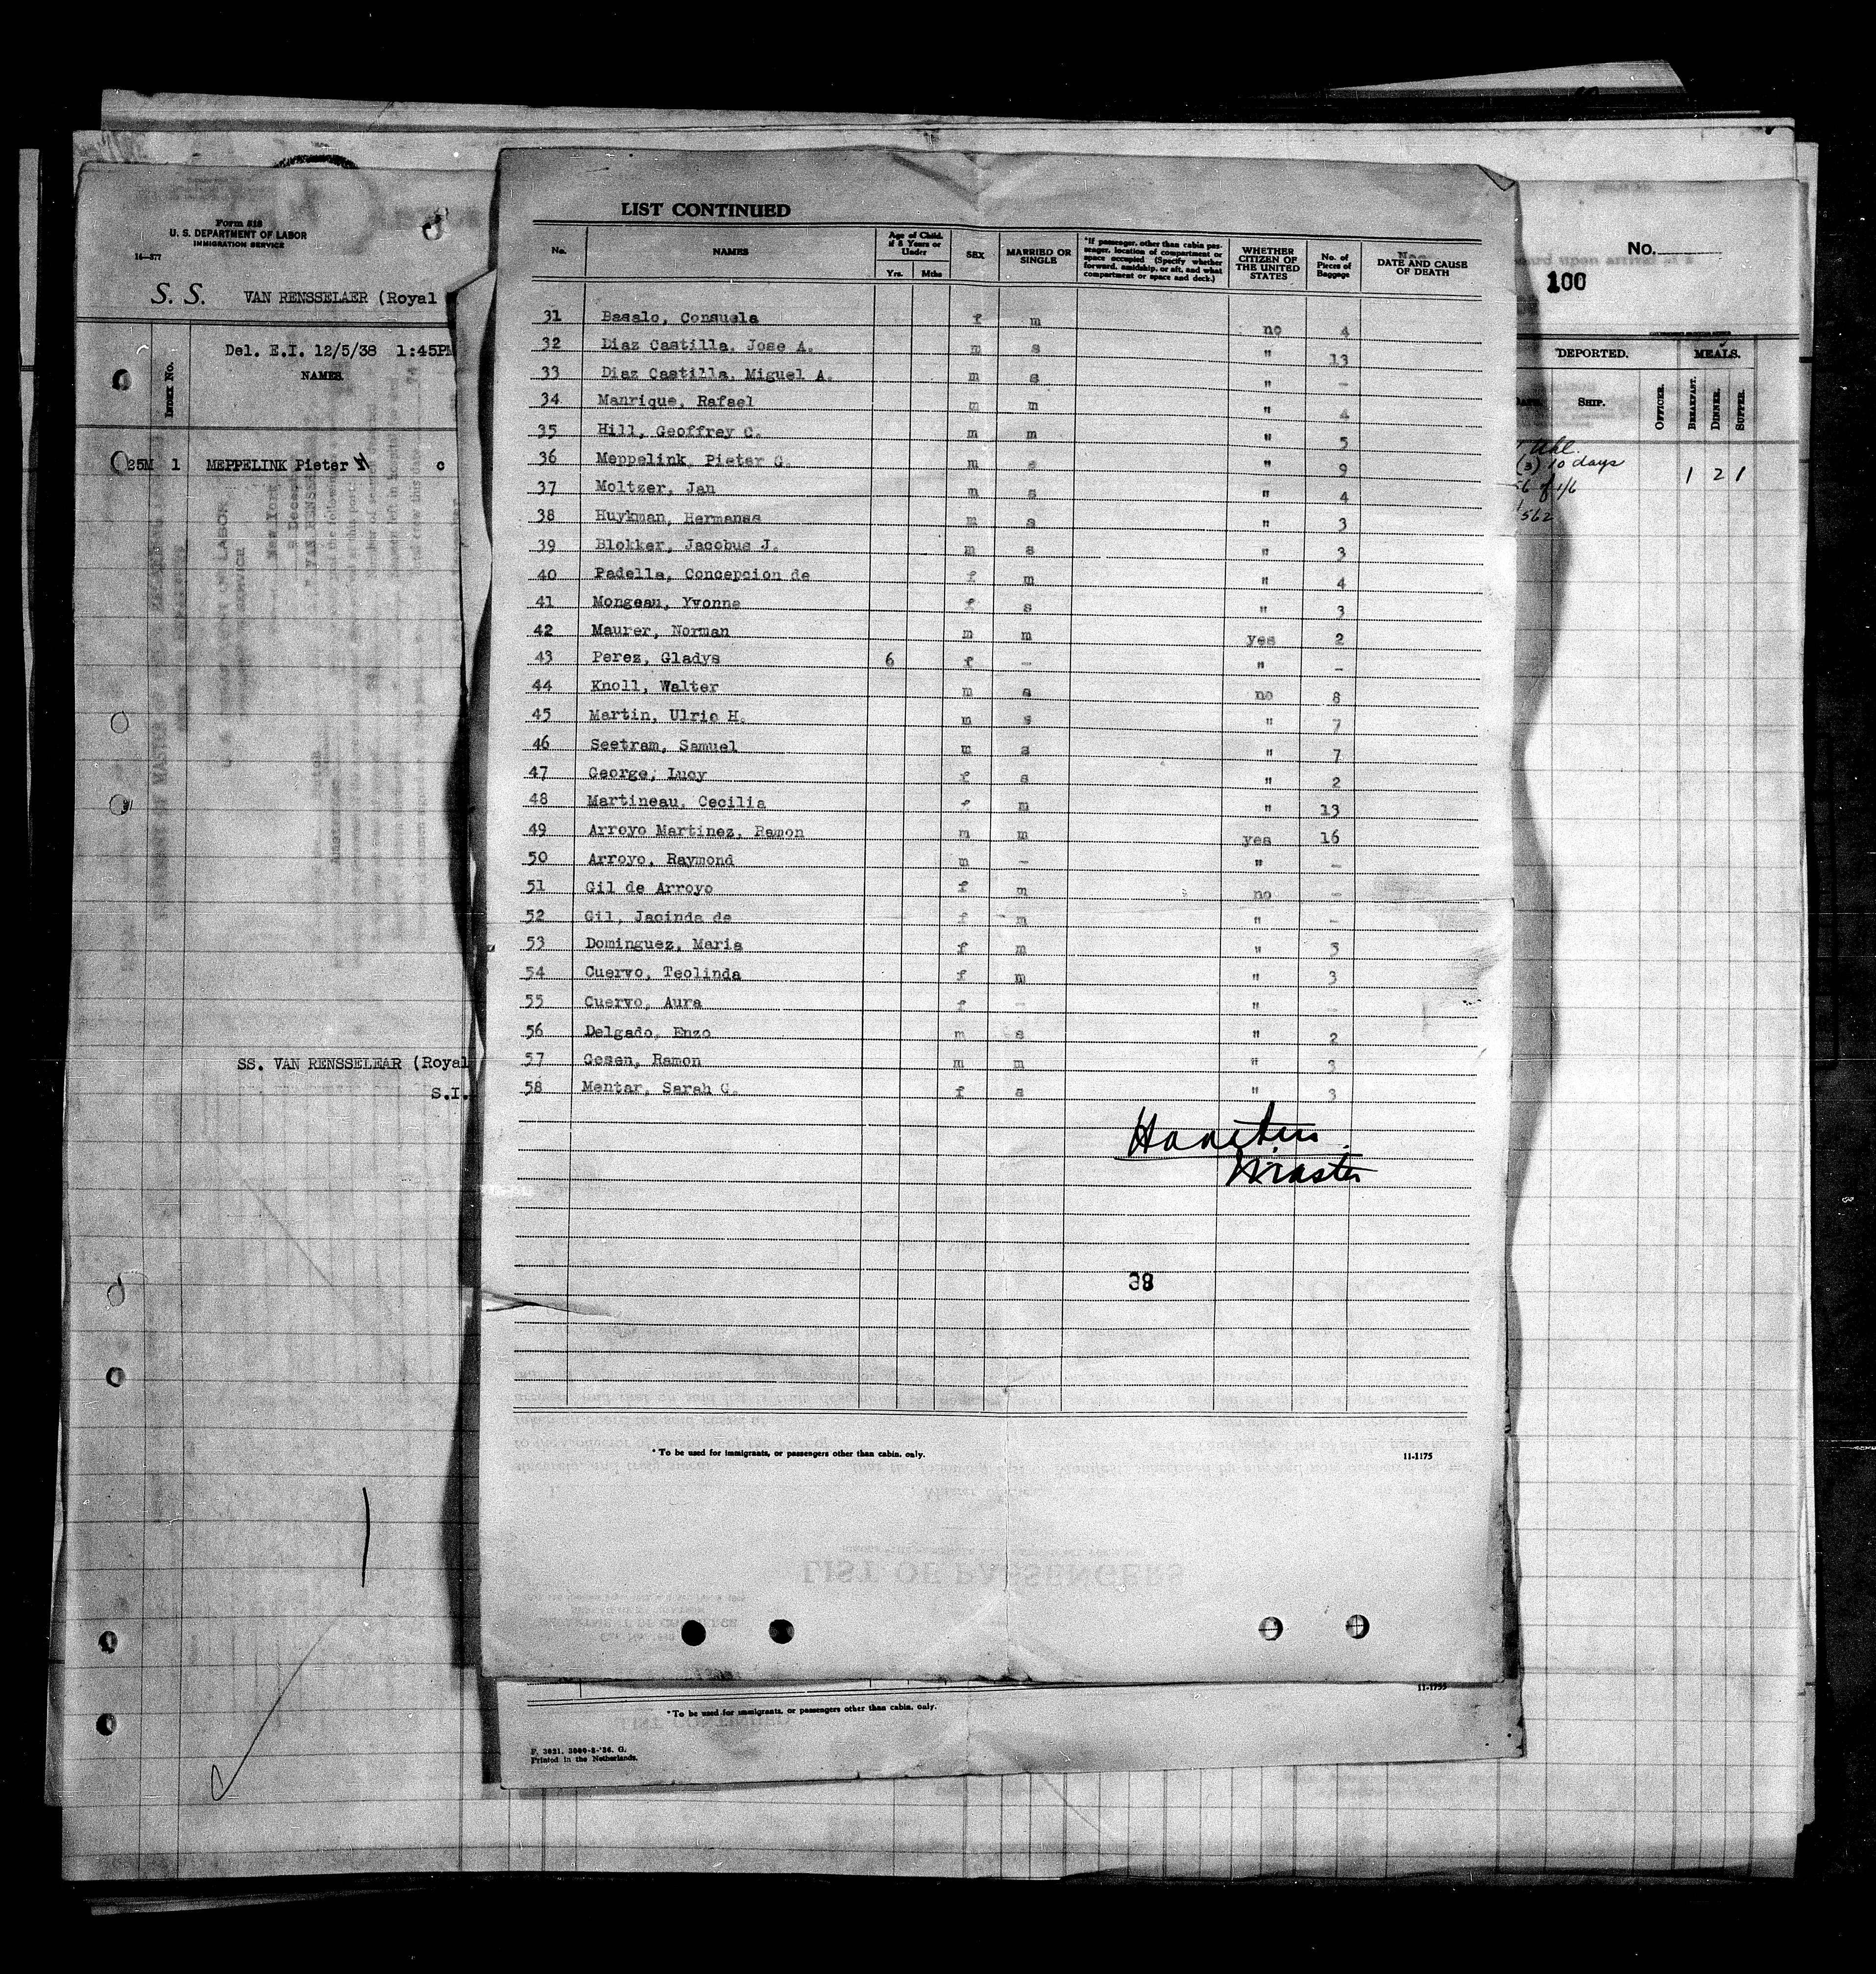 Form 518
U. S. DEPARTMENT OF LABOR
IMMIGRATION SERVICE
16—577
S. S. VAN RENSSELAER (Royal
Del. E.I. 12/5/38 1:45PM
INDEX No.
NAMES.
25M 1 MEPPELINK Pieter c
SS. VAN RENSSELEAR (Royal
S.I.
LIST CONTINUED
No. NAMES Age of Child, if 8 Years or Under Yrs. Mths SEX MARRIED OR SINGLE *If passenger, other than cabin passenger, location of compartment or space occupied (Specify whether forward, amidship, or aft, and what compartment or space and deck.) WHETHER CITIZEN OF THE UNITED STATES No. of Pieces of Baggage DATE AND CAUSE OF DEATH
31 Basalo, Consuela f m no 4
32 Diaz Castilla, Jose A. m s " 13
33 Diaz Castilla, Miguel A. m s " -
34 Manrique, Rafael m m " 4
35 Hill, Geoffrey C. m m " 5
36 Meppelink, Pieter G. m s " 9
37 Moltzer, Jan m s " 4
38 Huykman, Hermanss m s " 3
39 Blokker, Jacobus J. m s " 3
40 Padella, Concepcion de f m " 4
41 Mongeau, Yvonne f s " 3
42 Maurer, Norman m m yes 2
43 Perez, Gladys 6 f - " -
44 Knoll, Walter m s no 8
45 Martin, Ulric H. m s " 7
46 Seetram, Samuel m s " 7
47 George, Lucy f s " 2
48 Martineau, Cecilia f m " 13
49 Arroyo Martinez, Ramon m m yes 16
50 Arroyo, Raymond m - " -
51 Gil de Arroyo f m no -
52 Gil, Jacinda de f m " -
53 Dominguez, Maria f m " 3
54 Cuervo, Teolinda f m " 3
55 Cuervo, Aura f - " -
56 Delgado, Enzo m s " 2
57 Gesen, Ramon m m " 3
58 Mentar, Sarah G. f s " 3
Master
38
* To be used for immigrants, or passengers other than cabin, only.
11-1175
LIST OF PASSENGERS
* To be used for immigrants, or passengers other than cabin, only.
F. 3021. 3000-8-'36. G.
Printed in the Netherlands.
No.
100
DEPORTED. MEALS.
SHIP. OFFICER. BREAKFAST. DINNER. SUPPER.
(3) 10 days
1 2 1
562